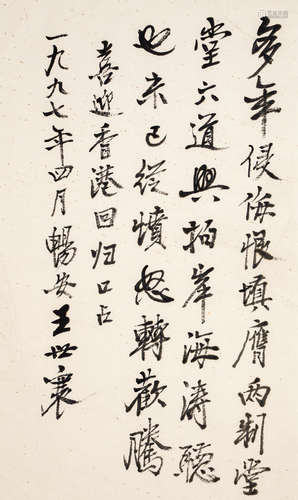 多年侵侮恨填膺两制堂
堂六道兴拍岸海涛听
也未已从愤怒转欢腾
喜迎香港回归口占
一九九七年四月畅安王世襄